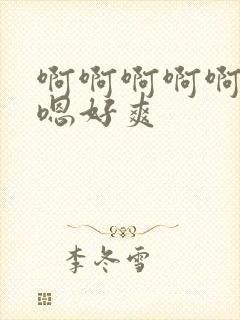 啊啊啊啊啊
嗯好爽
李冬雪